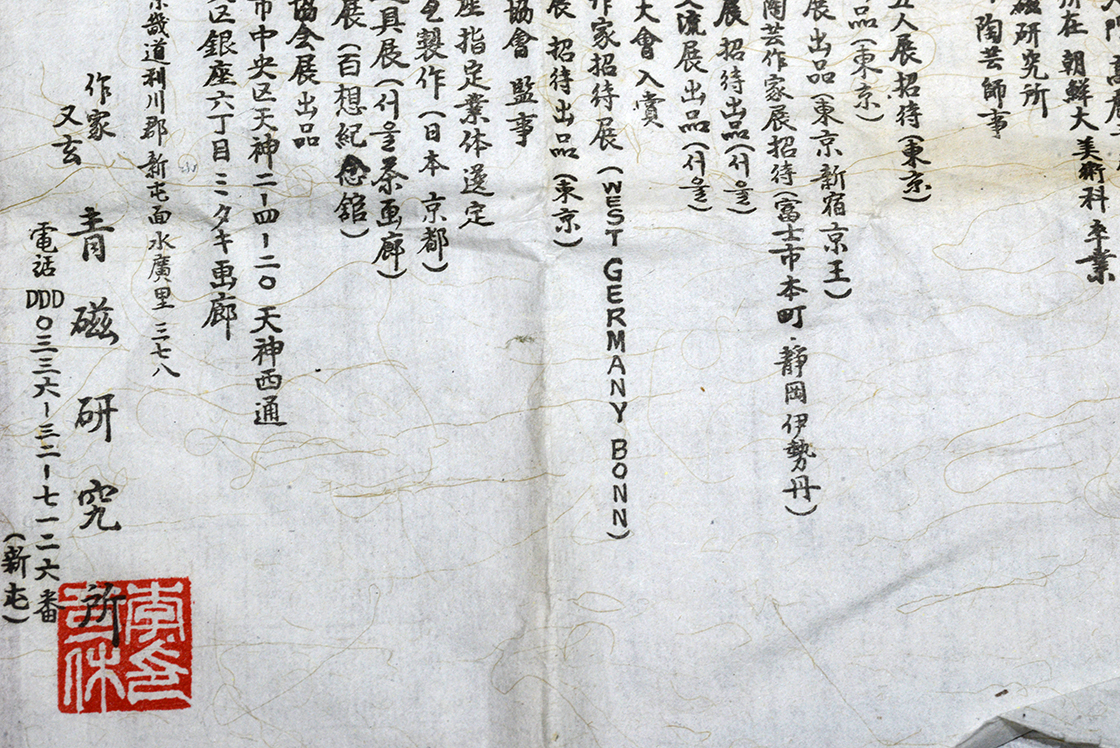 所在 朝鮮大 美術科 卒業
磁研究所
陶芸師事
五人展招待(東京)
品(東京)
展出品(東京新宿京王)
陶芸作家展招待富士市本町·靜岡伊勢丹)
展 招待出品(서울)
流展出品(서울)
大會入賞
作家招待展(WEST GERMANY BONN)
展 招待出品(東京)
協會 監事
指定業体選定
製作(日本京都)
具展(서울茶画廊)
展(百想紀念舘)
協会展出品
市中央区天神二-四-二〇 天神西通
区銀座六丁目ミタキ画廊
京畿道利川郡新屯面水廣里 三七八
作家
又玄
青磁研究所
電話 DDD〇三三六-三二-七一二六番
(新屯)